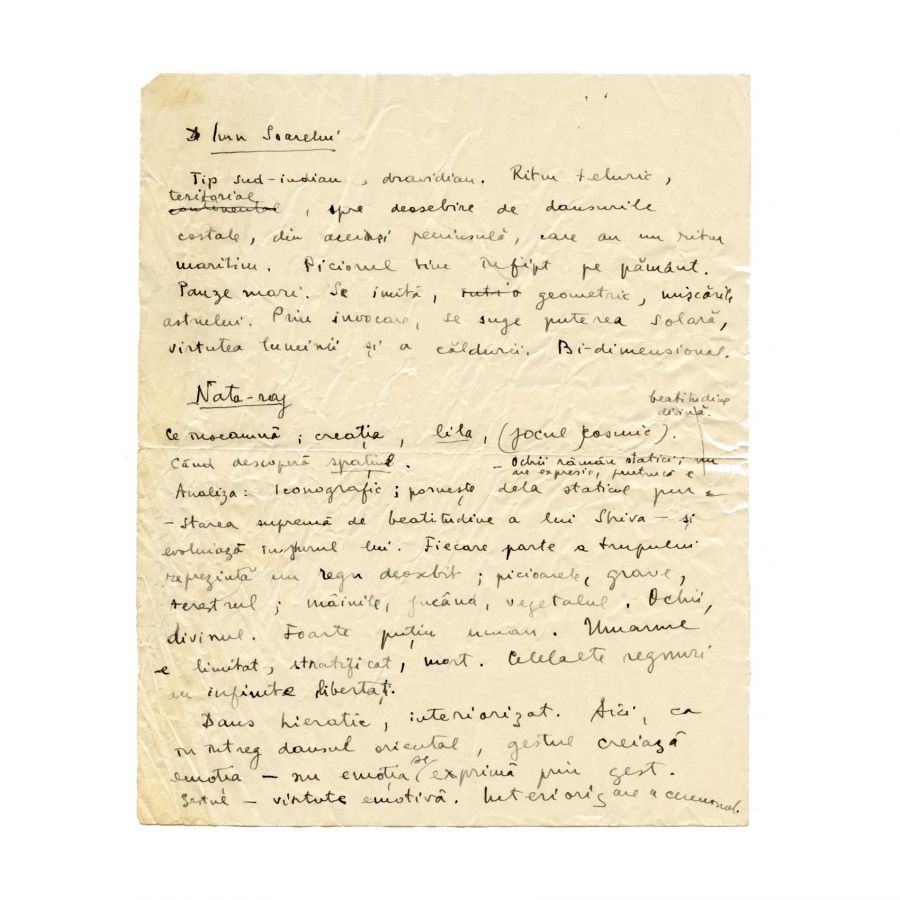 Imn Soarelui
Tip sud-indian, dravidian. Ritm teluric,
teritorial
continental, spre deosebire de dansurile
costale, din aceiași peninsulă, care au un ritm
maritim. Piciorul bine înfipt pe pământ.
Pauze mari. Se imită, geometric, mișcările
astrului. Prin invocare, se suge puterea solară,
virtutea luminii și a căldurii. Bi-dimensional.
Nata-raj
beatitudine
divină.
Ce înseamnă; creația, lila, (jocul cosmic).
Când descoperă spațiul. - Ochii rămân statici; nu
are expresie, pentrucă e
Analiza: Iconografic; pornește dela staticul pur
- starea supremă de beatitudine a lui Shiva - și
evoluiază înjurul lui. Fiecare parte a trupului
reprezintă un regn deosebit; picioarele, grave,
terestrul; mâinile, jucând, vegetalul. Ochii,
divinul. Foarte puțin uman. Umanul
e limitat, stratificat, mort. Celelalte regnuri
au infinite libertăți.
Dans hieratic, interiorizat. Aici, ca
în întreg dansul oriental, gestul creiază
emoția - nu emoția se exprimă prin gest.
Gestul - virtute emotivă. Interiorizare a